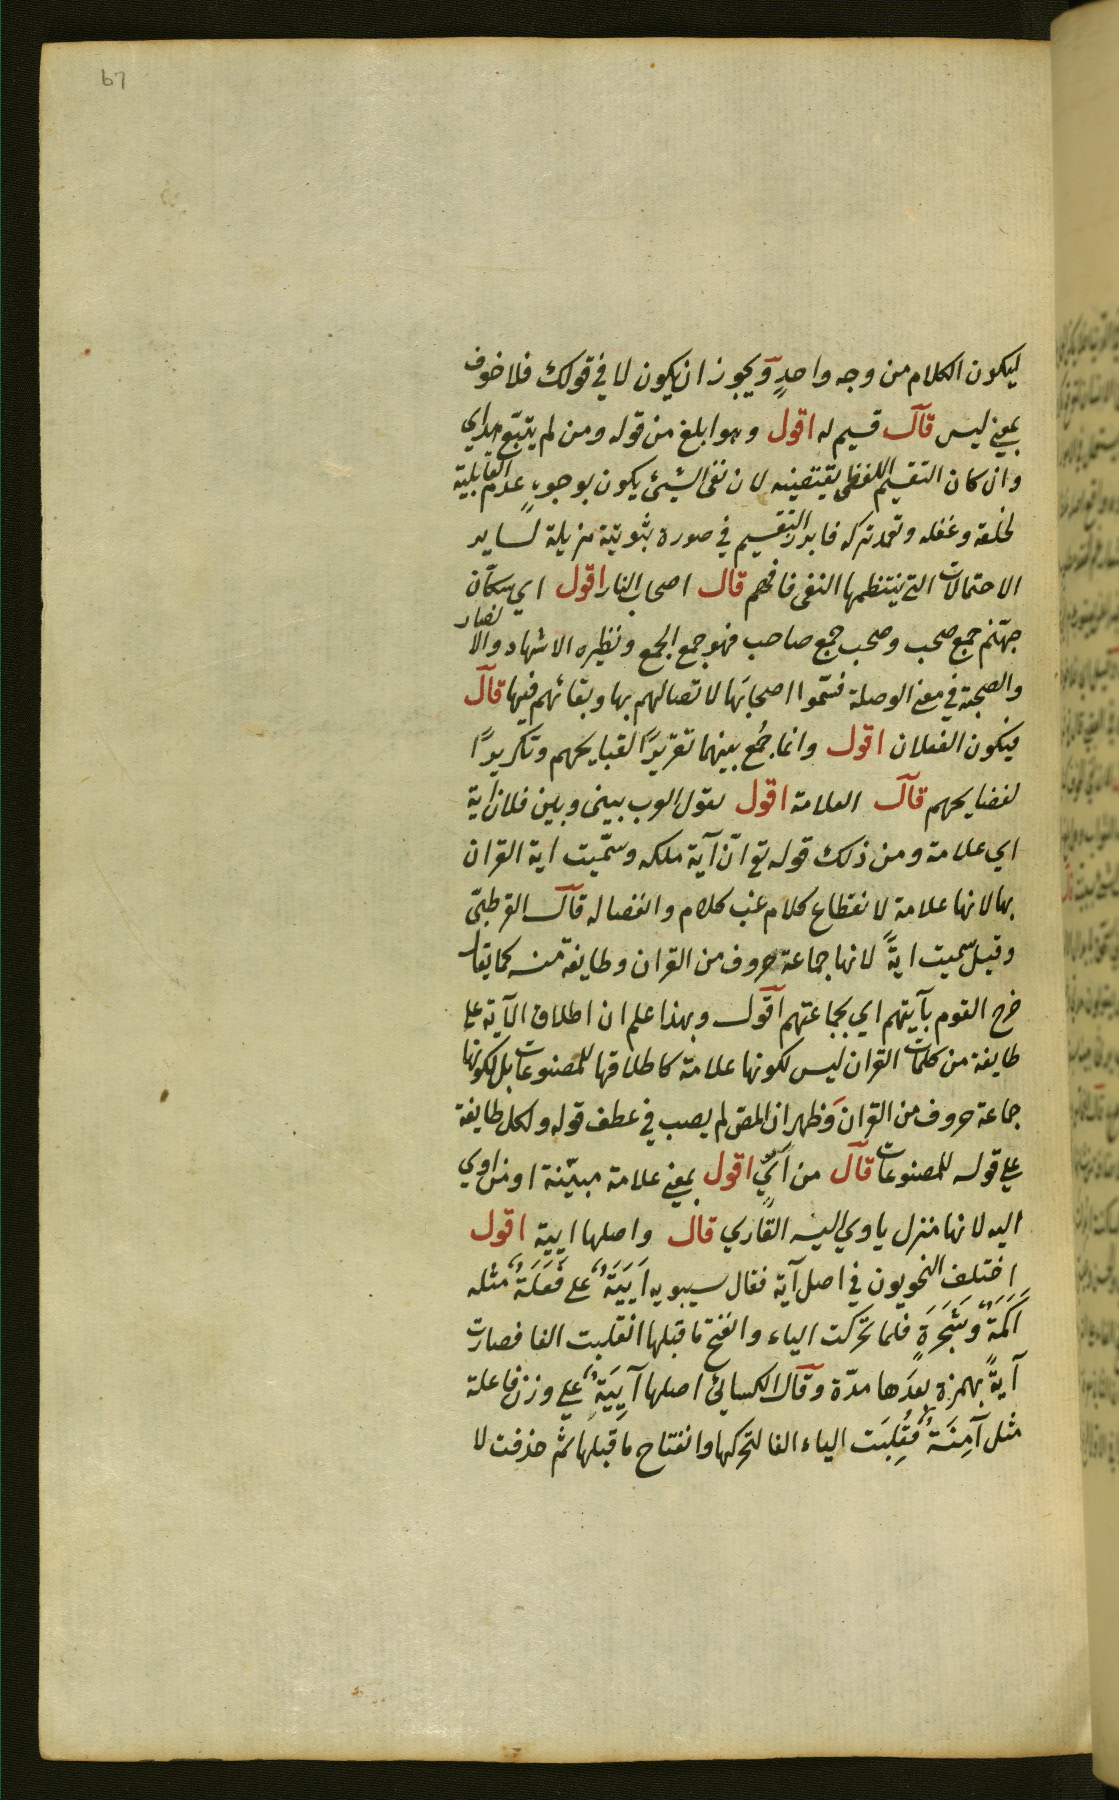 67
ليكون الكلام من وجه واحدٍ ويجوز ان يكون لا في قولك فلا خوف
بمعنى ليس قال قسيم له اقول وهو ابلغ من قوله ومن لم يتبع هداي
وان كان التقسيم اللفظي يقتضيه لان نفى الشيئ يكون بوجوهٍ عدم القابلية
لخلقة وغفله وتعمد تركه فابدر التقسيم في صورة ثبوتية مزيلة لساير
الاحتمالات التي ينتظمها النفى فافهم قال اصحاب النار اقول اي سكّان
جهنّم جمع صحب وصحب جمع صاحب فهو جمع الجمع ونظيره الاشهاد والا نصار
والصحبة في معنى الوصلة فسّموا اصحابَها لاتصالهم بها وبقائهم فيها قال
فيكون الفعلان اقول وانما جُمع بينهما تقريرًا لقبايحهم وتكريرًا
لفضايحهم قال العلامة اقول لقول العرب بيني وبين فلان اية
اي علامة ومن ذلك قوله تع انّ آية ملكه وسمّيت اية القران
بها لانها علامة لانقطاع كلام عن كلام وانفصاله قال القرطبيّ
وقيل سميت ايةً لانها جماعة حروف من القران وطايفة منه كما يقال
خرج القوم بآيتهم اي بجماعتهم اقول وبهذا علم ان اطلاق الآية على
طايفة من كلمات القران ليس لكونها علامة كاطلاقها للمصنوعات بل لكونها
جماعة حروف من القران وظهر ان المص لم يصب في عطف قوله ولكل طايفة
على قوله للمصنوعات قال من ايٍّ اقول بمعنى علامة مبيّنة او من اوي
اليه لانها منزل ياوي اليه القاري قال واصلها ايية اقول
اختلف النحويون في اصل آية فقال سيبويه اَيَيَةٌ على فَعَلَةٌ مثله
اَكَمَةٌ وشَجَرَةٍ فلما تحركت الياء وانفتح ما قبلها انقلبت الفا فصارت
آيةً بهمزة بعدَها مدّة وقال الكسائي اصلها آيِيَةٌ على وزن فاعلة
مثل آمِنَةٌ فقُلِبَت الياء الفا لتحركها وانفتاح ما قبلها ثم حذفت لا